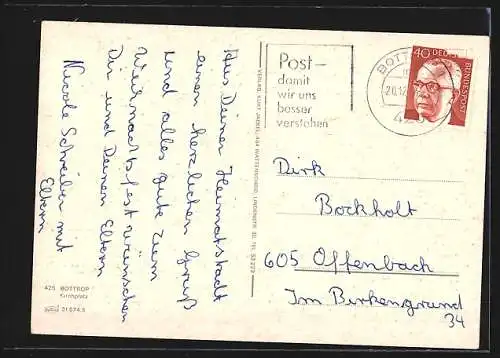 Aus Deiner Heimatstadt
einen herzlichen Gruß
und alles gute zum
Weihnachtsfest wünschen
Dir und Deinen Eltern
Nicole Schreiber mit
Eltern
425 BOTTROP
Kirchplatz
31 074.5
Post–
damit
wir uns
besser
verstehen
BOTT
20.12
40
DEUTSCHE
BUNDESPOST
Dirk
Bockholt
605 Offenbach
Im Birkengrund
34